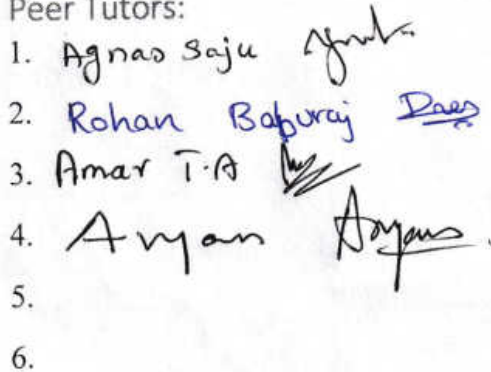 Peer Tutors:
1. Agnas Saju
2. Rohan Baburaj
3. Amar T.A
4. Aryan Aryans
5.
6.